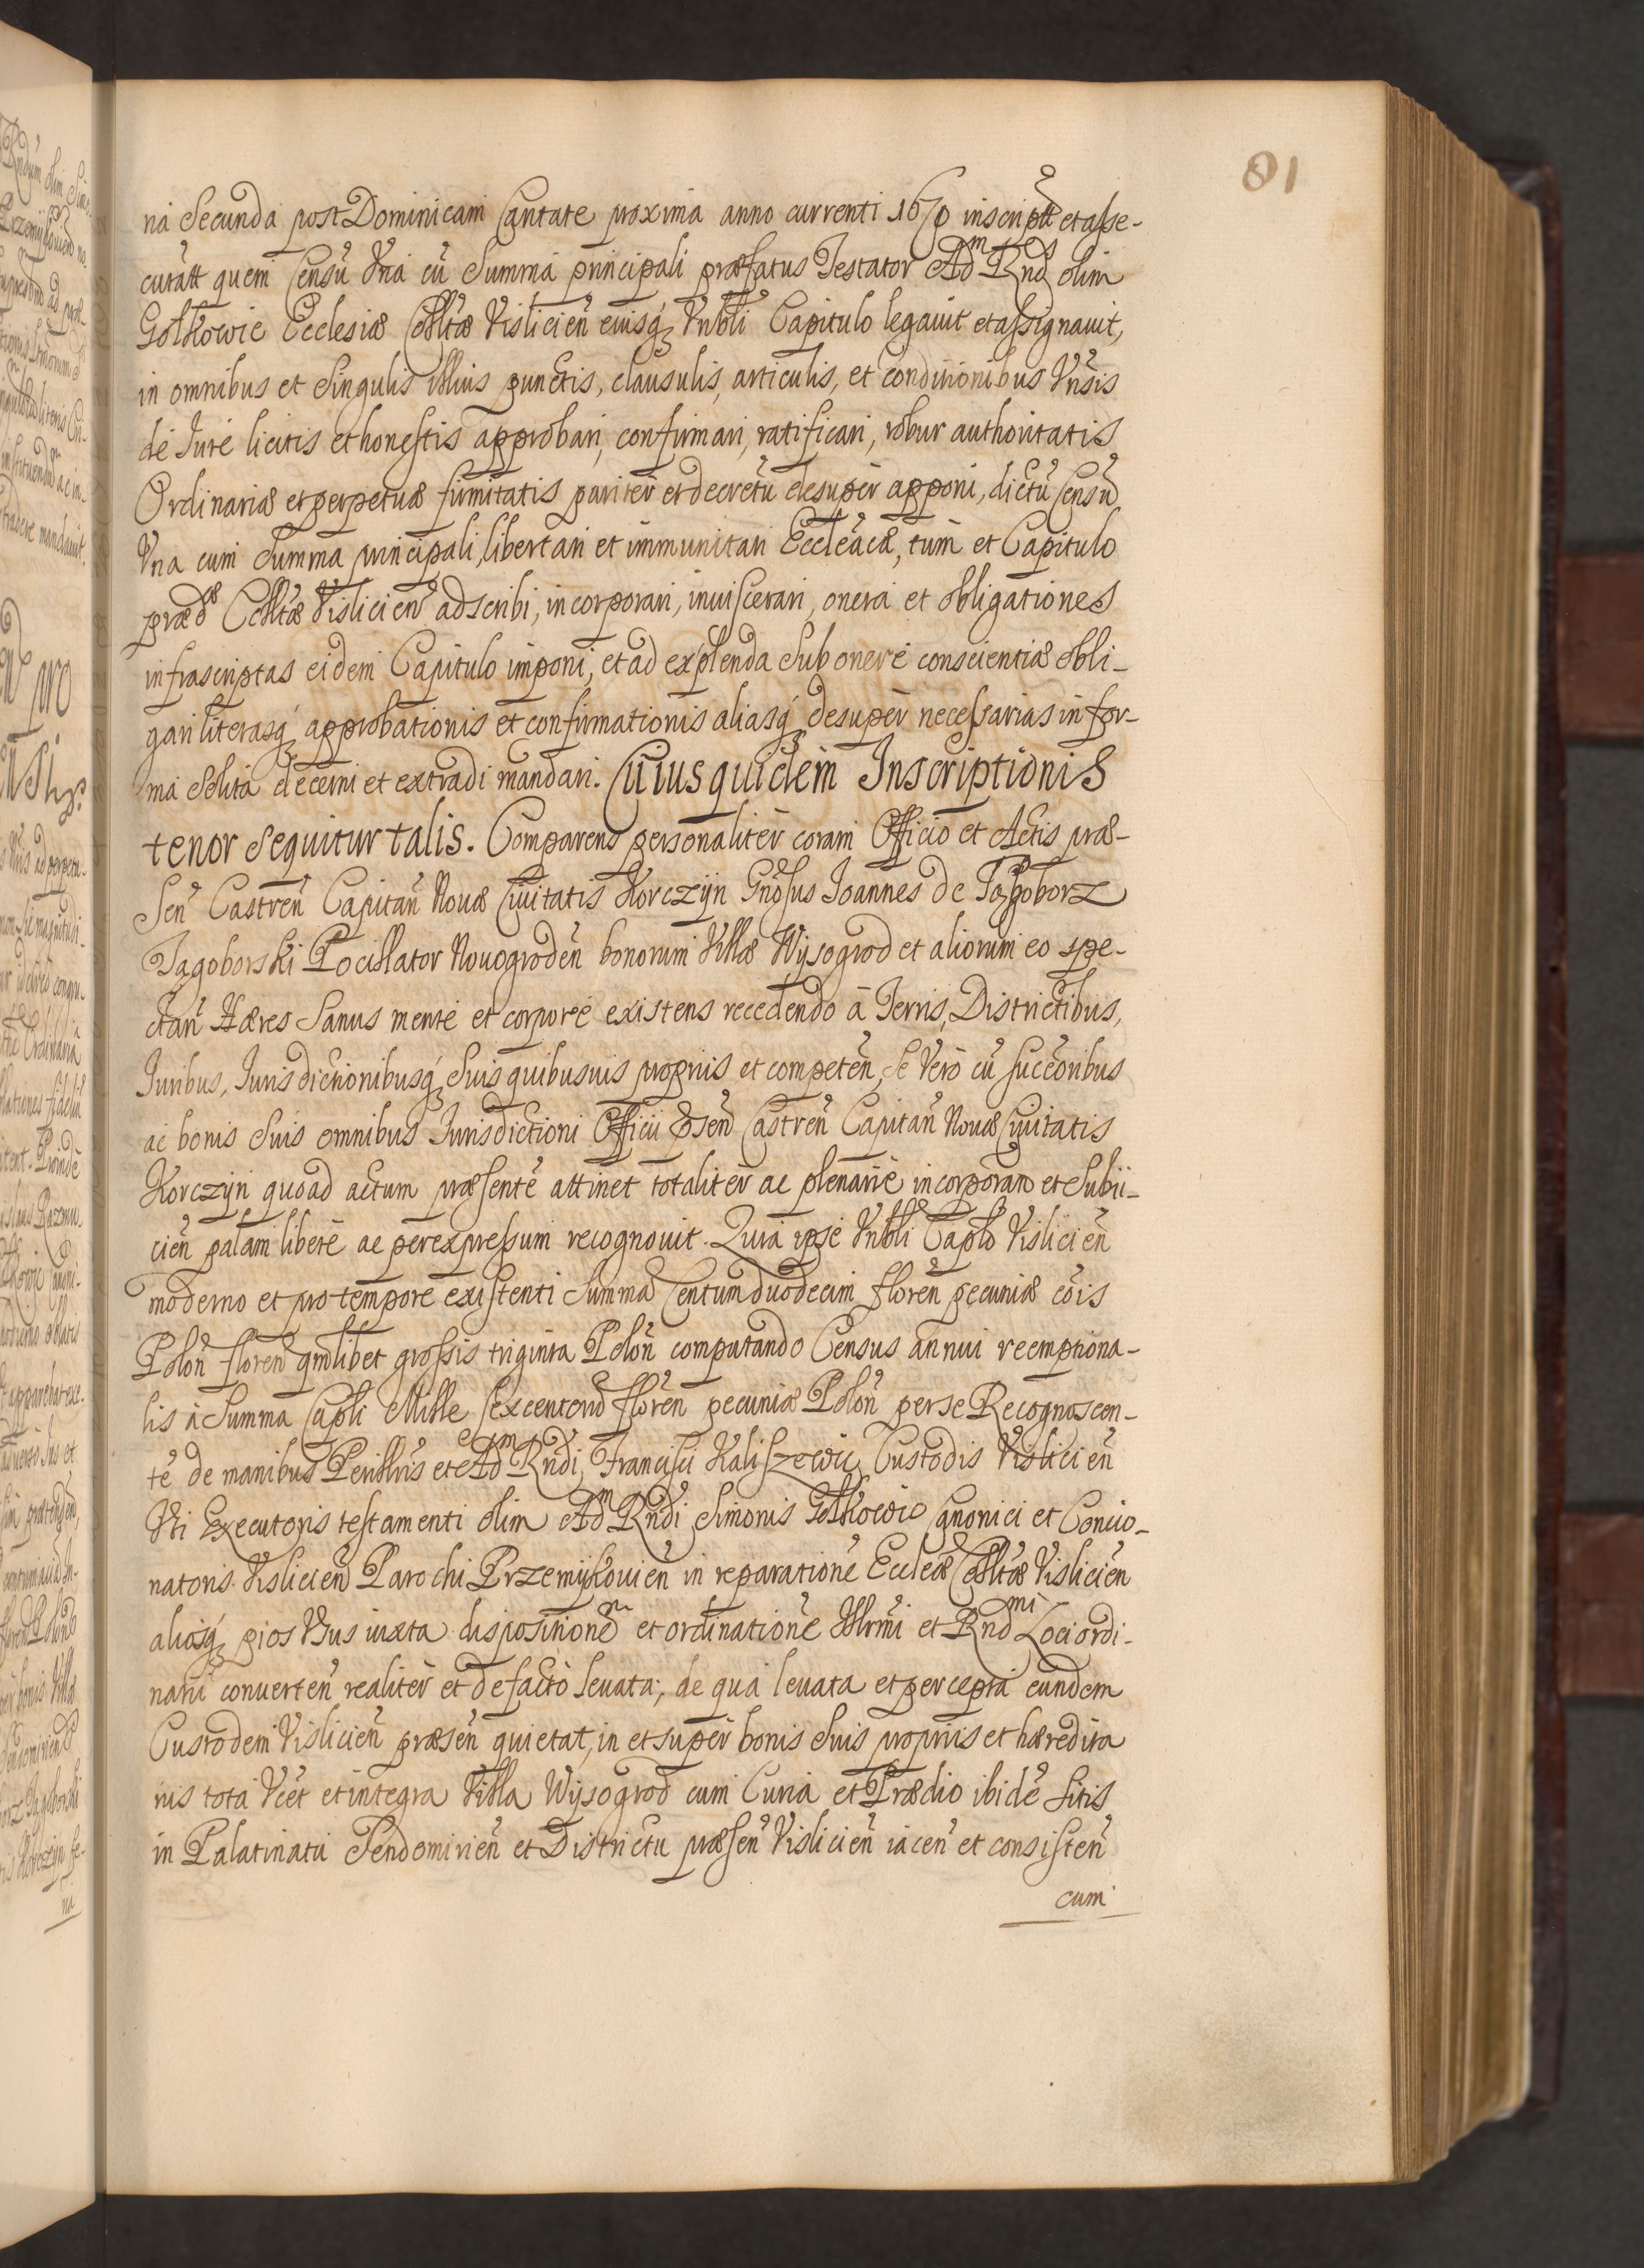 81
na Secunda post Dominicam Cantate proxima anno currenti 1670 inscriptt et asse-
curatt quem Censũ Vna cũ Summa principali præfatus Testator Adm Rndꝰ olim
Golkowic Ecclesiæ Colltæ Vislicień eiusq Vnbli Capitulo legauit et assignauit,
in omnibus et Singulis illius punctis, clausulis, articulis, et conditionibus Vnsis
de Iure licitis et honestis approbari, confirmari, ratificari, robur authoritatis
Ordinariæ et perpetuæ firmitatis pariter et decretũ desuper apponi, dictũ Censũ
Vna cum Summa principali, libertari et immunitari Eccleacæ, tum et Capitulo
prædæ Colltæ Vislicień adscribi, incorporari, inuiscerari, onera et obligationes
infrascriptas eidem Capitulo imponi, et ad explenda Sub onere conscientiæ obli-
gari literasq approbationis et confirmationis aliasq desuper necessarias in for-
ma Solita decerni et extradi mandari. Cuius quidem Inscriptionis
tenor Sequitur talis. Comparens personaliter coram Officio et Actis præ-
Seń Castreń Capitań Nouæ Ciuitatis Korczyn Gnosus Ioannes de Jagoborz
Jagoborski Pocillator Nouogrodeń bonorum Villæ Wysogrod et aliorum eo spe-
ctań Hæres Sanus mente et corpore existens recedendo à Terris, Districtibus,
Iuribus, Iurisdictionibusq Suis quibusuis propriis et competeń, Se Vero cũ succeoribus
ac bonis Suis omnibus Iurisdictioni Officii Pseń Castreń Capitań Nouæ Ciuitatis
Korczyn quoad actum præsentẽ attinet totaliter ac plenarie incorporań et Subii-
cień palam libere ac per expressum recognouit. Quia ipse Vnbli Caplo Vislicień
moderno et pro tempore existenti Summã Centum duodecim floreń pecuniæ cois
Poloń floreń qmlibet grossis triginta Poloń computando Census annui reemptiona-
lis à Summa Capli Mille Sexcentorũ floreń pecuniæ Poloń per se Recognoscen-
te de manibus Perillris et Adm Rndi Francisci Kaliszewic Custodis Vislicień
Vti Executoris testamenti olim Adm Rndi Simonis Golkowic Canonici et Concio-
natoris Vislicień Parochi Przemykouień in reparationẽ Eccleæ Colltæ Vislicień
aliosq pios Vsus iuxta dispositionẽ et ordinationẽ Illrmi et Rndmi Loci ordi-
narii conuerteń realiter et de facto leuata, de qua leuata et percepta eundem
Custodem Vislicień præseń quietat, in et super bonis Suis propriis et hæredita
riis tota Vcet et integra Villa Wysogrod cum Curia et Prædio ibidẽ Sitis
in Palatinatu Sendomirień et Districtu præseń Vislicień iaceń et consisteń
cum